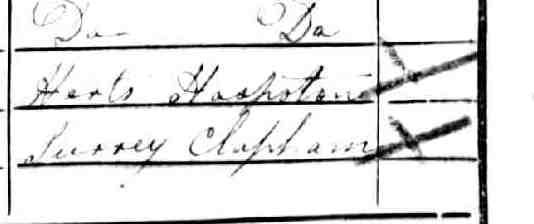 Do Do
Herts
Surrey Clapham